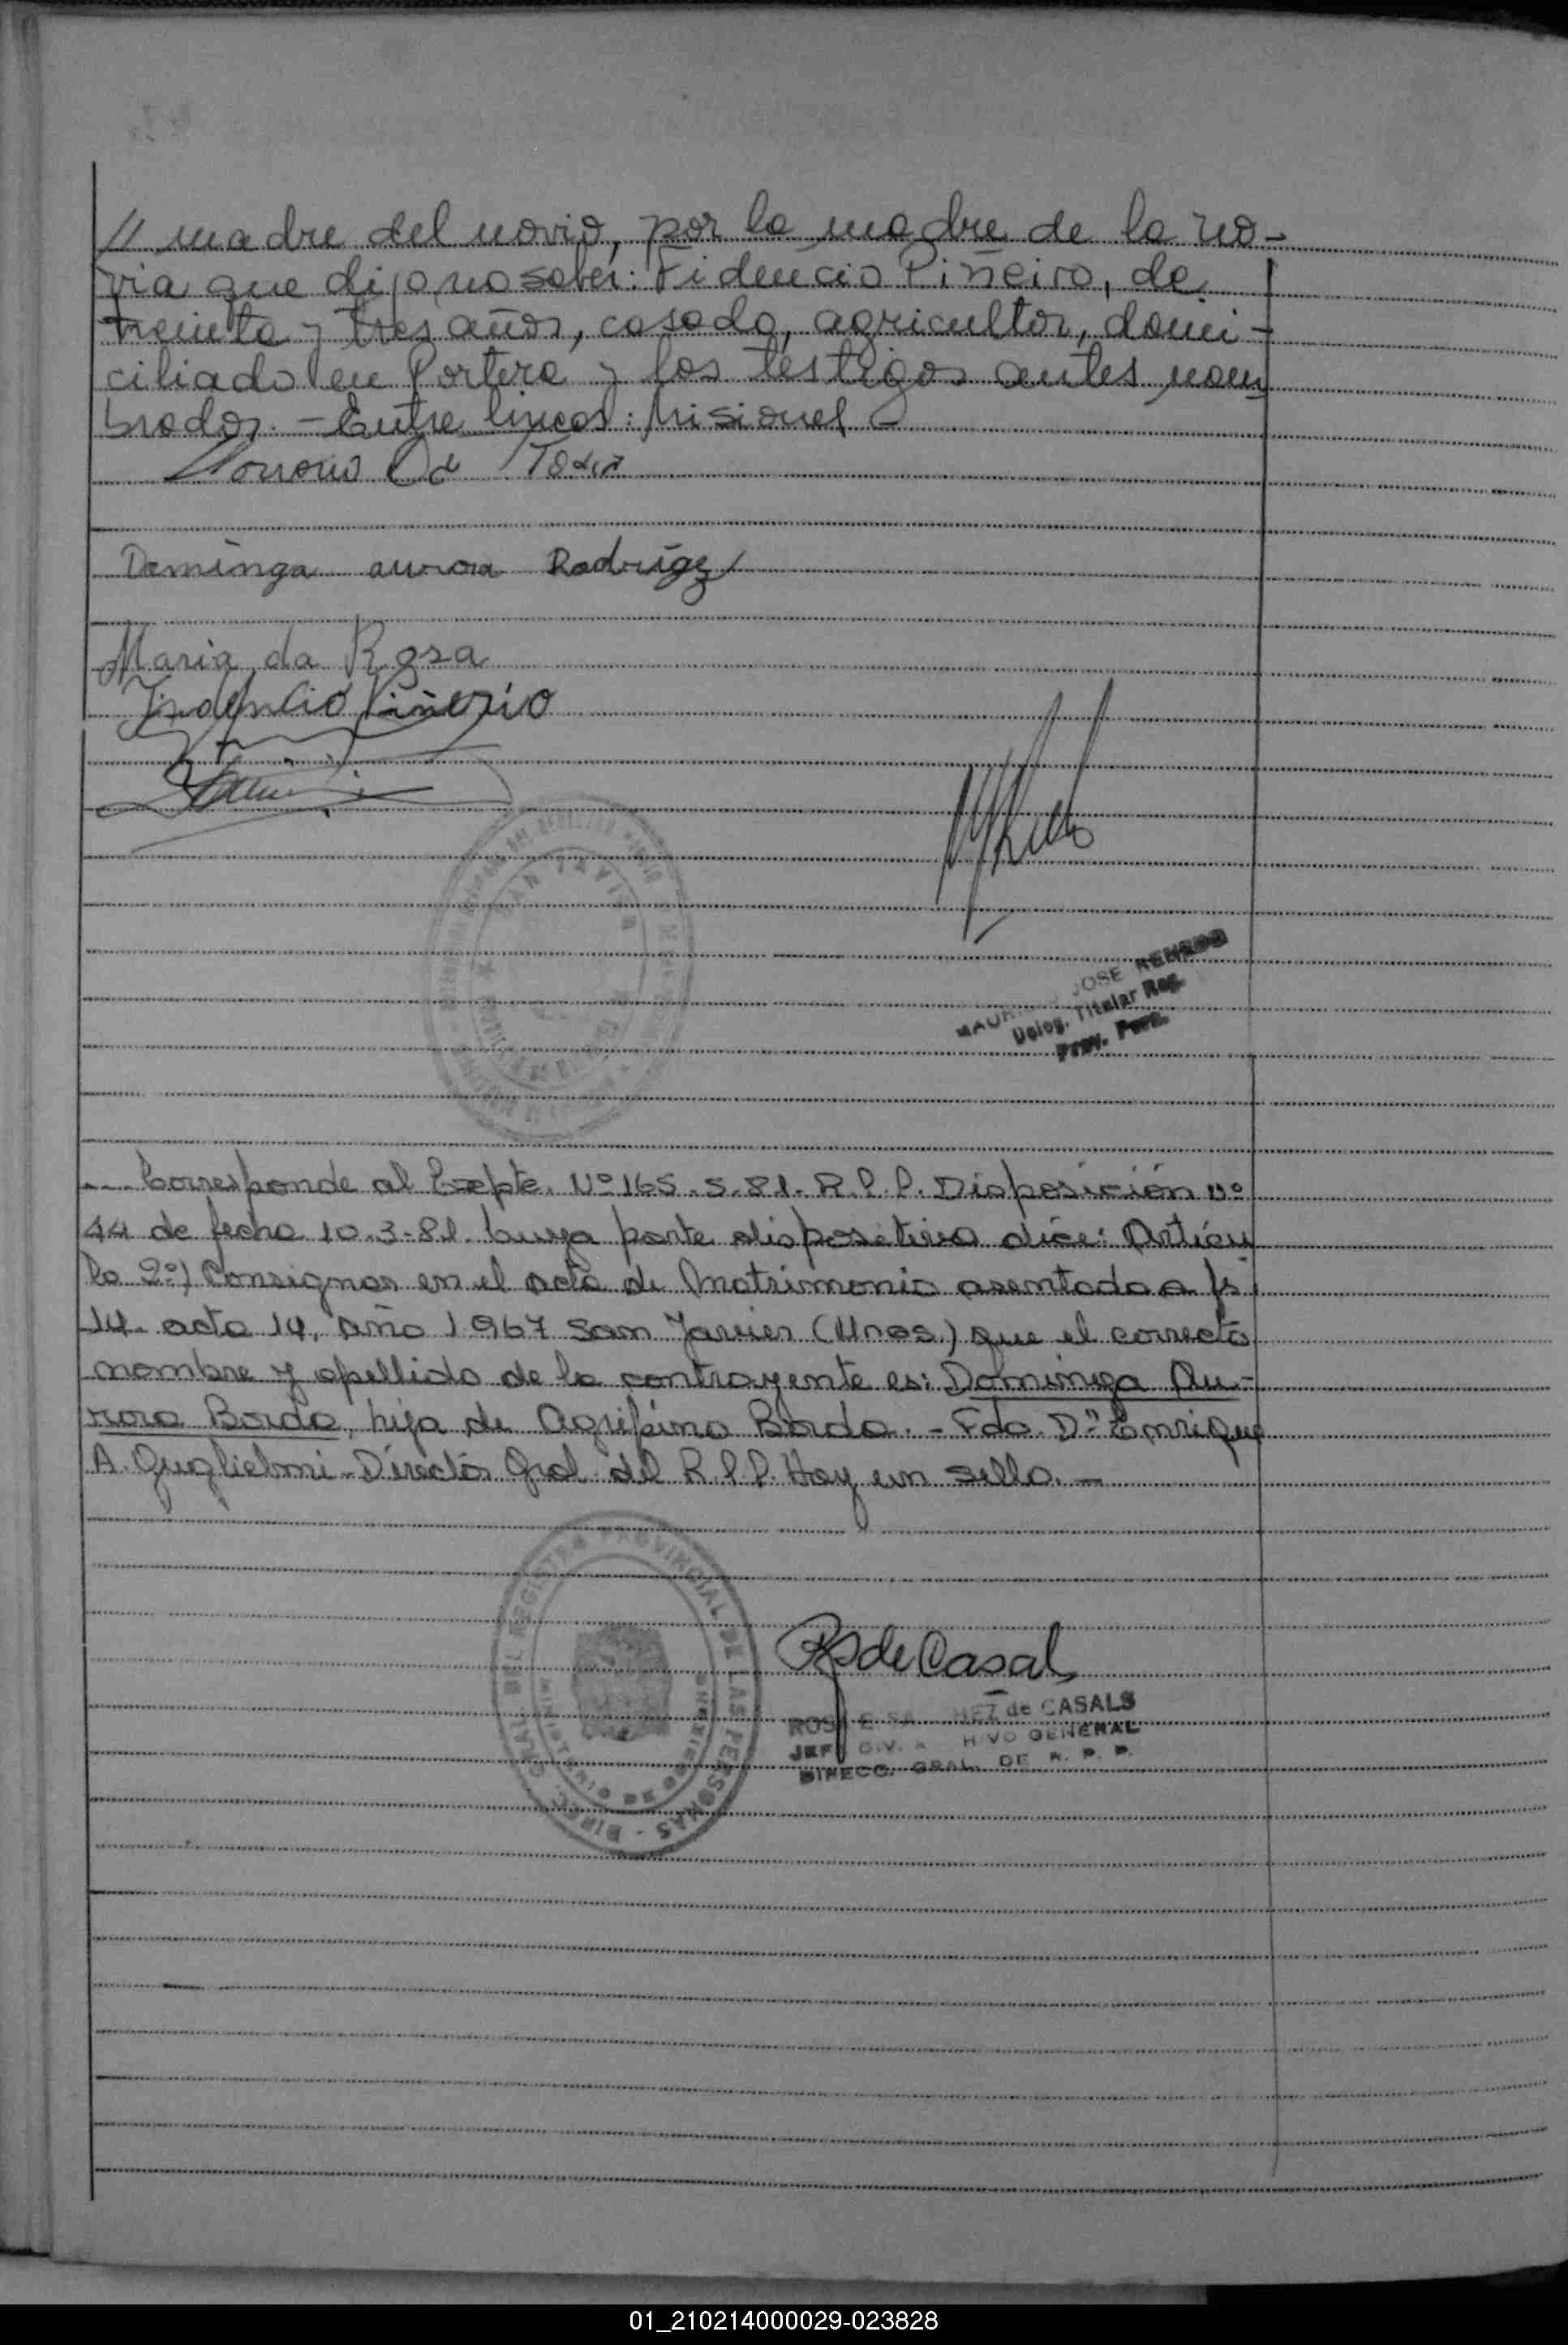 // madre del novio, por la madre de la no-
via que dijo no saber: Fidencio Piñeiro, de
treinta y tres años, casado, agricultor, domi-
ciliado en Portera y los testigos antes nom
brados. - Entre lineas: Misiones
Dominga aurora Rodrigez
Maria da Rosa
SAN JAVIER
JOSE
Deleg. Titular Reg.
Prov. Pers.
--- Corresponde al Expte. Nº 165.S.81. R.P.P. Disposición nº
44 de fecha 10.3.81. Cuya parte dispositiva dice: Artícu
lo 2º) Consignar en el acta de Matrimonio asentada a fs
14. acta 14, año 1967 San Javier (Mnes.) que el correcto
nombre y apellido de la contrayente es: Dominga Au-
rora Borda, hija de Agripina Borda. - Fdo. Dn Enrique
A. Guglielmi - Director Gral. del R.P.P. Hay un sello. -
DIREC. GRAL. DEL REGISTRO PROVINCIAL DE LAS PERSONAS
MINISTERIO DE GOBIERNO
RS de Casals
de CASALS
GENERAL
DIRECC. GRAL. DE R. P. P.
01_210214000029-023828